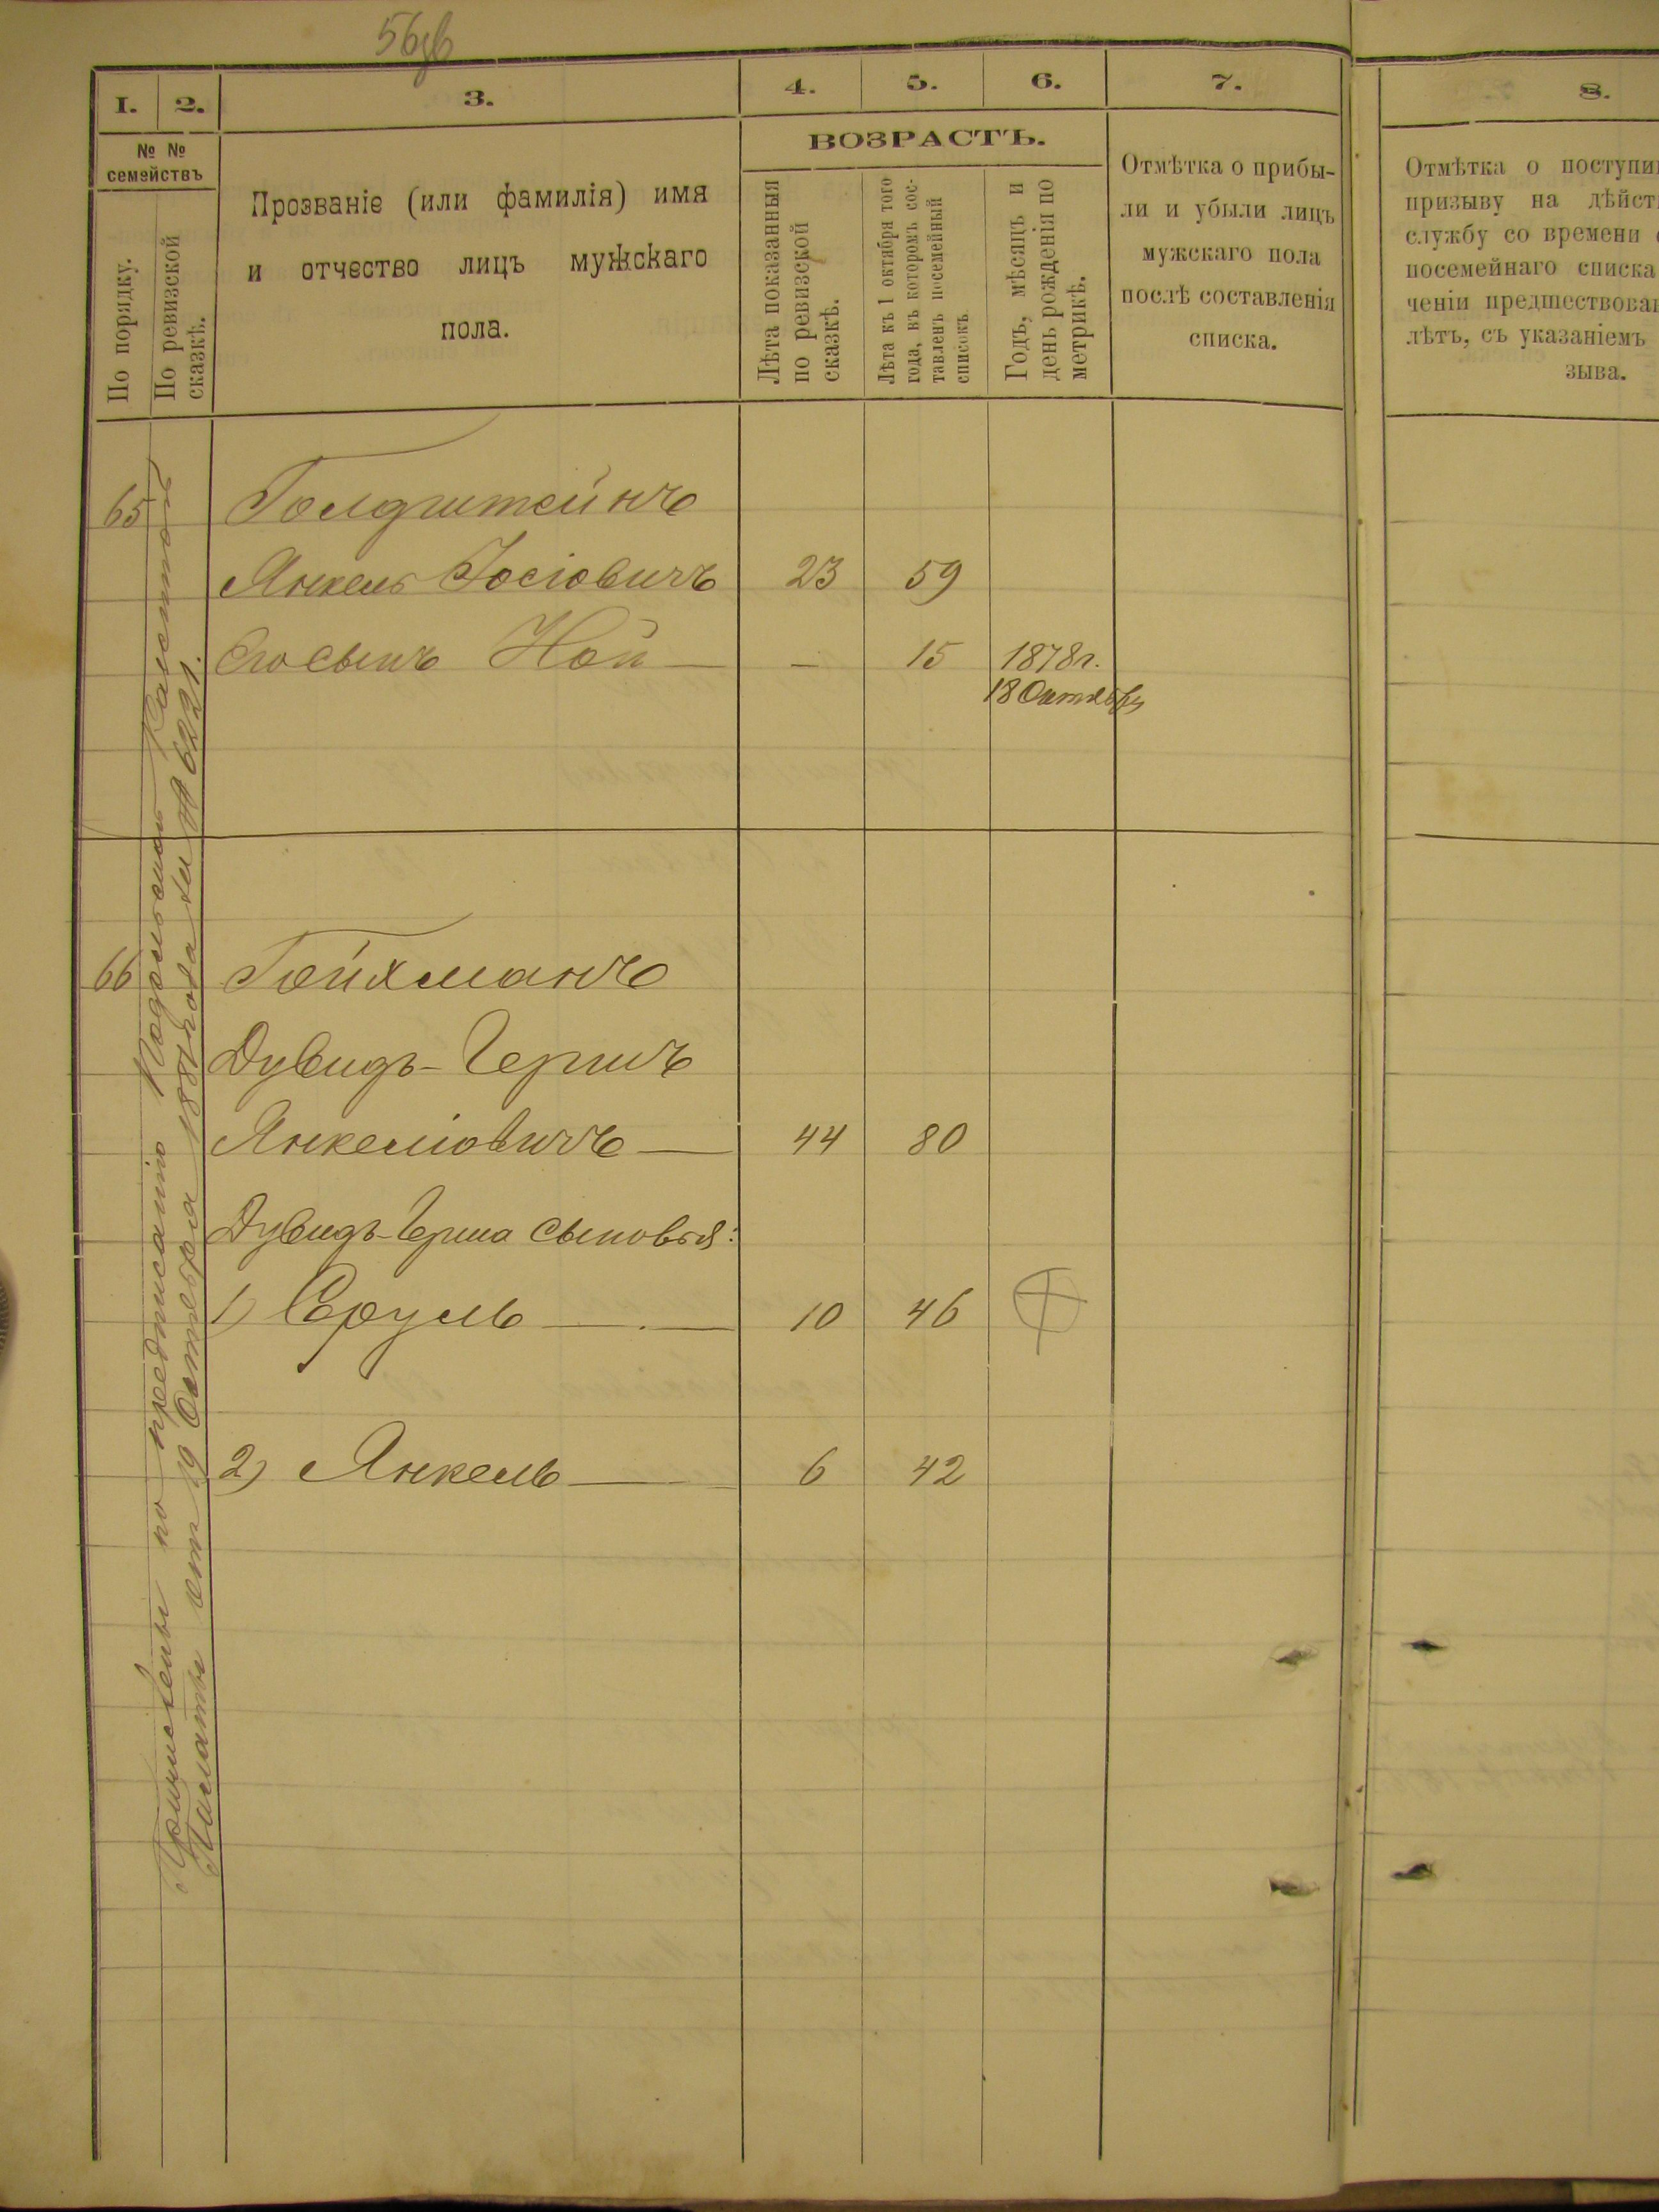 56об
1. 2. 3. 4. 5. 6. 7. 8.
№ №
семействъ
По порядку.
По ревизской
сказкѣ.
Прозваніе (или фамилія) имя
и отчество лицъ мужскаго
пола.
ВОЗРАСТЪ.
Лѣта показанныя
по ревизской
сказкѣ.
Лѣта къ 1 октября того
года, въ которомъ сос-
тавленъ посемейный
списокъ.
Годъ, мѣсяцъ и
день рожденія по
метрикѣ.
Отмѣтка о прибы-
ли и убыли лицъ
мужскаго пола
послѣ составленія
списка.
Отмѣтка о поступи
призыву на дѣйст
службу со времени
посемейнаго списка
ченіи предшествова
лѣтъ, съ указаніемъ
зыва.
Причислены по предписанію Подольской Казенной
Палаты отъ 19 Октября 1881 года за № 6221.
65 Голдштейнъ
Янкель Іосіовичъ 23 59
Его сынъ Ной — — 15 1878 г.
18 Октября
66 Гойхманъ
Дувидъ-Гершъ
Янкеліовичъ — 44 80
Дувидъ-Герша сыновья:
1) Сруль — 10 46
2) Янкель — 6 42